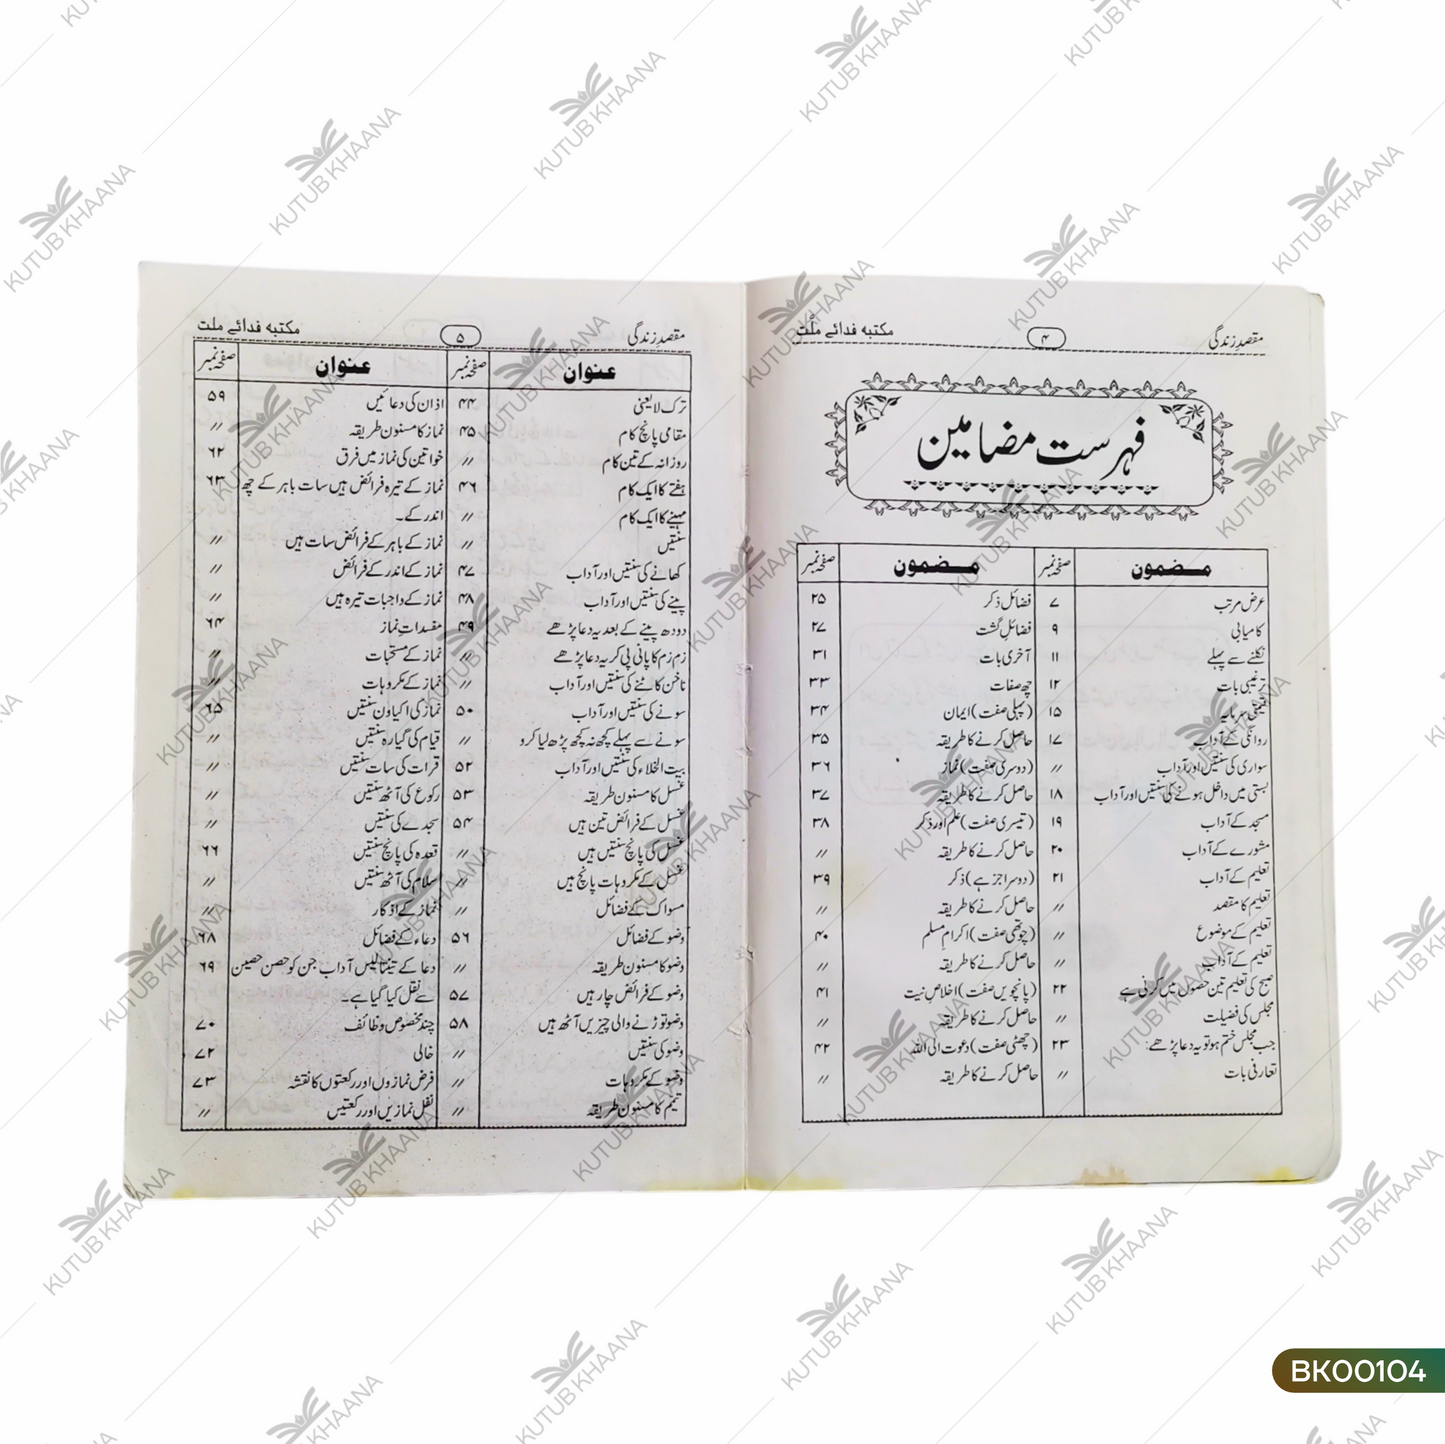 مقصدِ زندگی ۴ مکتبہ فدائے ملّت
فہرست مضامین
مضمون صفحہ نمبر مضمون صفحہ نمبر
عرض مرتب ۷ فضائل ذکر ۲۵
کامیابی ۹ فضائلِ گشت ۲۷
نکلنے سے پہلے ۱۱ آخری بات ۳۱
ترغیبی بات ۱۲ چھ صفات ۳۳
قیمتی سرمایہ ۱۵ (پہلی صفت) ایمان ۳۴
روانگی کے آداب ۱۷ حاصل کرنے کا طریقہ ۳۵
سواری کی سنتیں اور آداب // (دوسری صفت) نماز ۳۶
بستی میں داخل ہونے کی سنتیں اور آداب ۱۸ حاصل کرنے کا طریقہ ۳۷
مسجد کے آداب ۱۹ (تیسری صفت) علم اور ذکر ۳۸
مشورے کے آداب ۲۰ حاصل کرنے کا طریقہ //
تعلیم کے آداب ۲۱ (دوسرا جز ہے) ذکر ۳۹
تعلیم کا مقصد // حاصل کرنے کا طریقہ //
تعلیم کے موضوع // (چوتھی صفت) اکرام مسلم ۴۰
تعلیم کے آداب // حاصل کرنے کا طریقہ //
صبح کی تعلیم تین حصوں میں کرنی ہے ۲۲ (پانچویں صفت) اخلاص نیت ۴۱
مجلس کی فضیلت // حاصل کرنے کا طریقہ //
جب مجلس ختم ہو تو یہ دعا پڑھے: ۲۳ (چھٹی صفت) دعوت الی اللہ ۴۲
تعارفی بات // حاصل کرنے کا طریقہ //
مقصدِ زندگی ۵ مکتبہ فدائے ملت
عنوان صفحہ نمبر عنوان صفحہ نمبر
ترک لایعنی ۴۴ اذان کی دعائیں ۵۹
مقامی پانچ کام ۴۵ نماز کا مسنون طریقہ //
روزانہ کے تین کام // خواتین کی نماز میں فرق ۶۲
ہفتے کا ایک کام ۴۶ نماز کے تیرہ فرائض ہیں سات باہر کے چھ ۶۳
مہینے کا ایک کام // اندر کے۔
سنتیں // نماز کے باہر کے فرائض سات ہیں //
کھانے کی سنتیں اور آداب ۴۷ نماز کے اندر کے فرائض //
پینے کی سنتیں اور آداب ۴۸ نماز کے واجبات تیرہ ہیں //
دودھ پینے کے بعد یہ دعا پڑھے ۴۹ مفسدات نماز ۶۴
زم زم کا پانی پی کر یہ دعا پڑھے // نماز کے مستحبات //
ناخن کاٹنے کی سنتیں اور آداب // نماز کے مکروہات //
سونے کی سنتیں اور آداب ۵۰ نماز کی اکیاون سنتیں ۶۵
سونے سے پہلے کچھ نہ کچھ پڑھ لیا کرو // قیام کی گیارہ سنتیں //
بیت الخلاء کی سنتیں اور آداب ۵۲ قرات کی سات سنتیں //
غسل کا مسنون طریقہ ۵۳ رکوع کی آٹھ سنتیں //
غسل کے فرائض تین ہیں ۵۴ سجدے کی سنتیں //
غسل کی پانچ سنتیں ہیں // قعدہ کی پانچ سنتیں ۶۶
غسل کے مکروہات پانچ ہیں // سلام کی آٹھ سنتیں //
مسواک کے فضائل // نماز کے اذکار //
وضو کے فضائل ۵۶ دعاء کے فضائل ۶۸
وضو کا مسنون طریقہ // دعا کے تینتالیس آداب جن کو حصن حصین ۶۹
وضو کے فرائض چار ہیں ۵۷ سے نقل کیا گیا ہے۔
وضو توڑنے والی چیزیں آٹھ ہیں ۵۸ چند مخصوص وظائف ۷۰
وضو کی سنتیں // خالی ۷۲
وضو کے مکروہات // فرض نمازوں اور رکعتوں کا نقشہ ۷۳
تیمم کا مسنون طریقہ // نفل نمازیں اور رکعتیں //
KUTUB KHAANA
BK00104